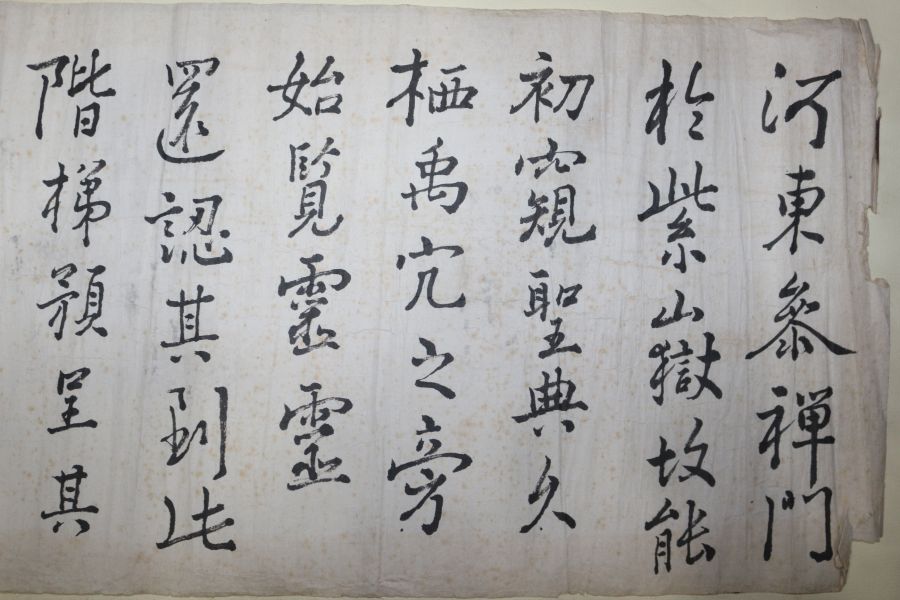 河東叅禅門
於紫嶽故能
初窺聖典久
栖禹穴之旁
始覧靈靈
還認其到此
階梯預呈其